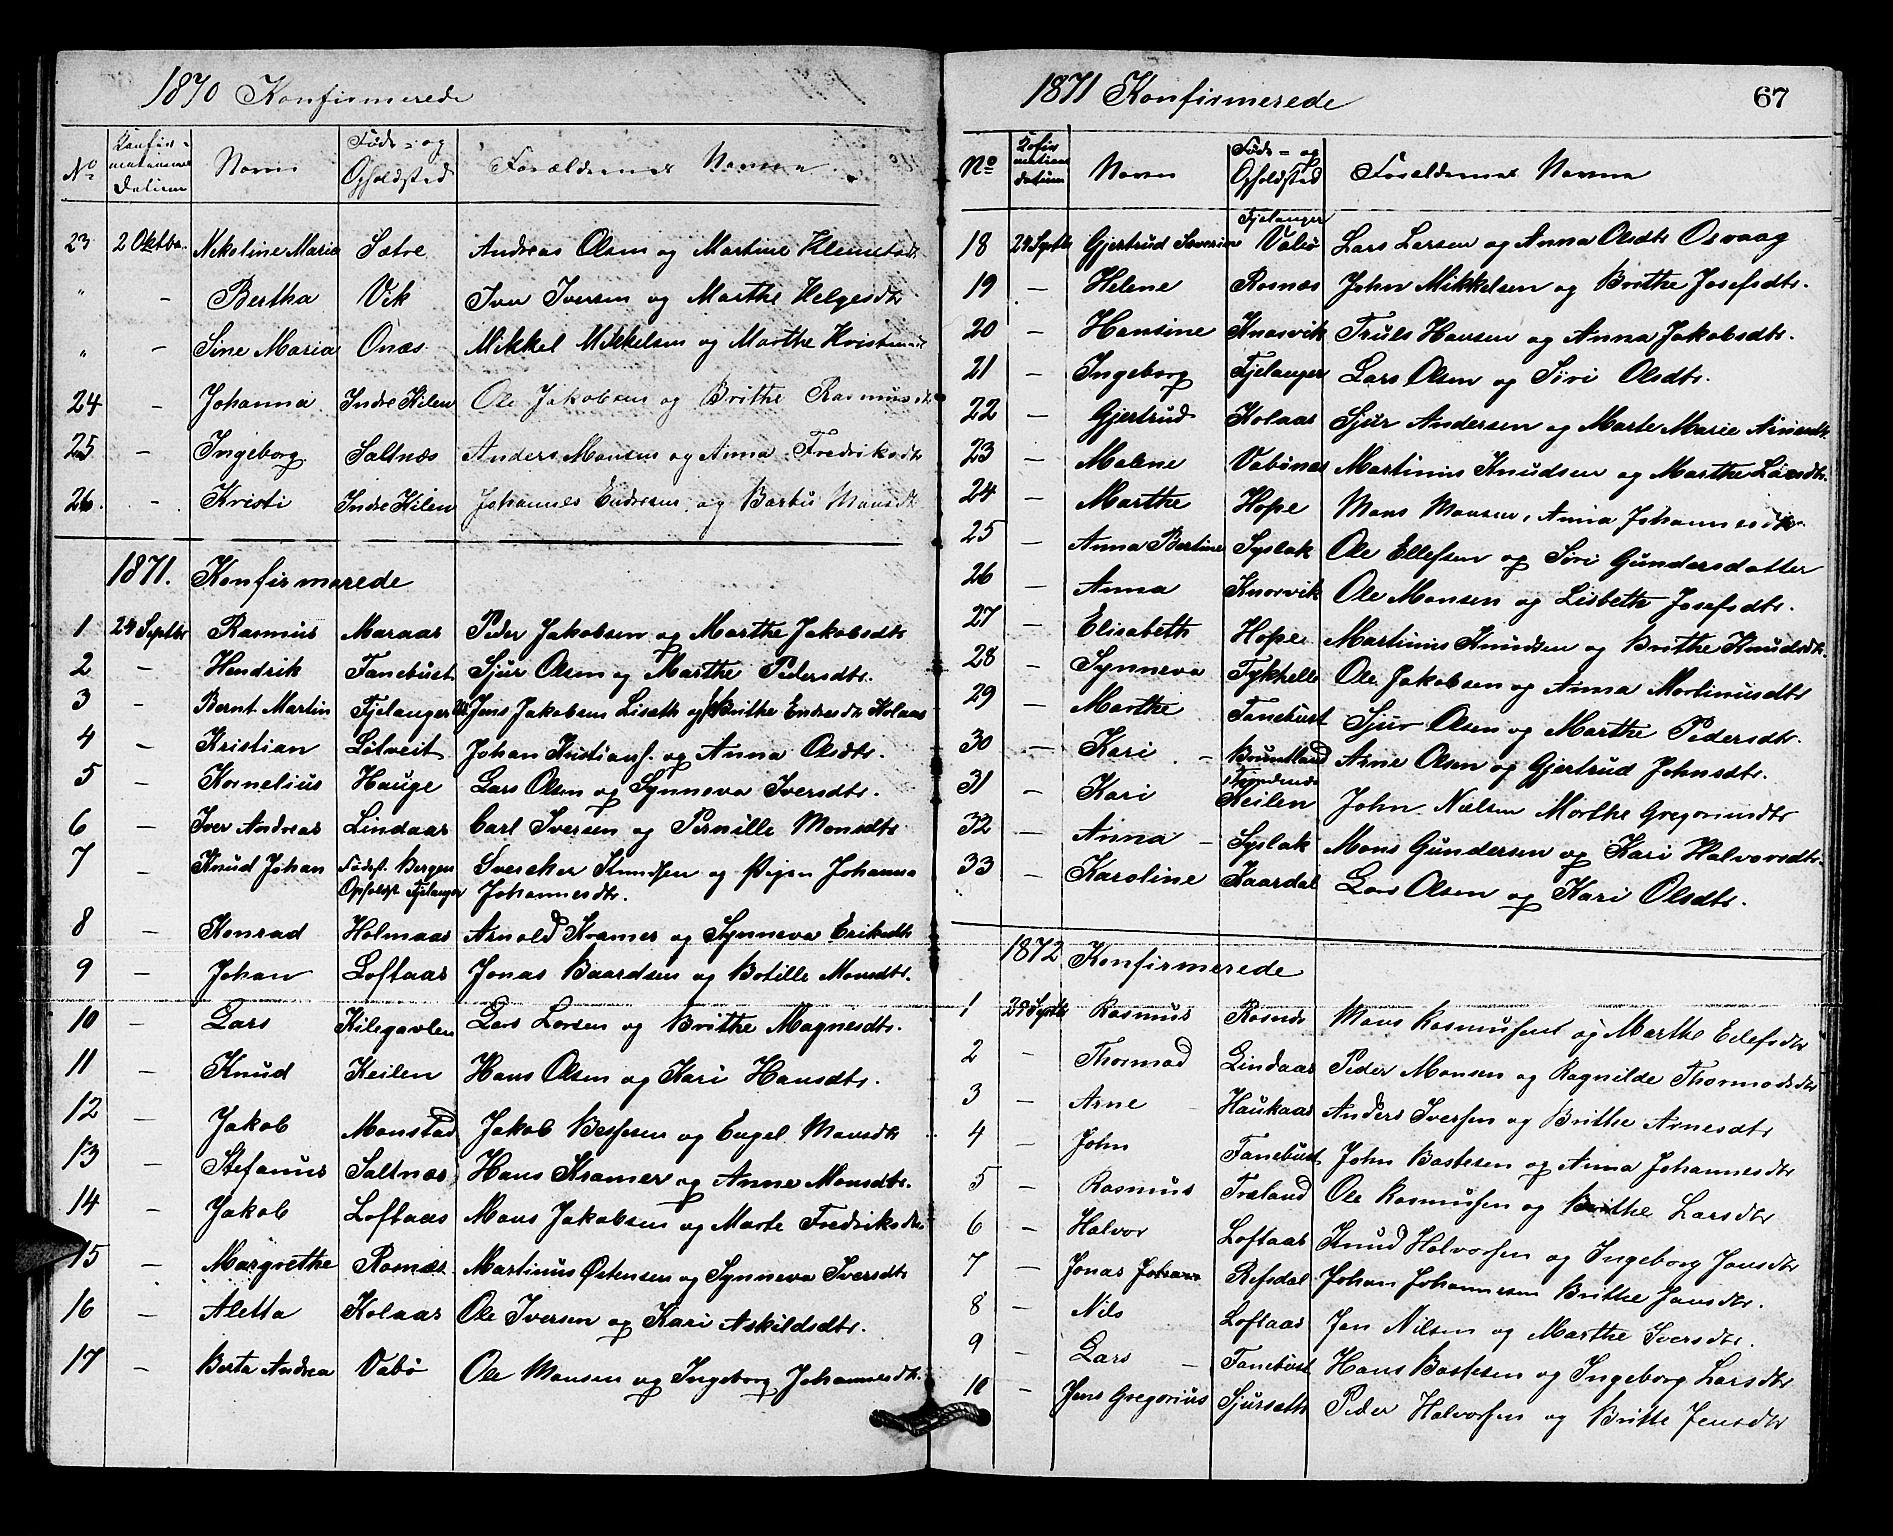 1870 Konfirmerede
No Konfirmationens Datum Navn Føde- og Opholdsted Forældrenes Navne
23 2 Oktbr. Nikoline Maria Sætre Andreas Olsen og Martine Klemetsdt
" - Bertha Vik Iver Iversen og Marthe Helgesdtr
" - Sine Maria Onæs Mikkel Mikkelsen og Marthe
24 - Johanna Indre Kilen Ole Jakobsen og Brithe Rasmusdtr
25 - Ingeborg Saltnæs Anders Monsen og Anna Fredriksdtr
26. - Kristi Indre Kilen Johannes Endresen og Monsdt
1871. Konfirmerede
1 24 Septbr Rasmus Maraas Peder Jakobsen og Marthe Jakobsdtr
2 - Hendrik Fanebust Sjur Olsen og Marthe Pedersdtr.
3 - Bernt Martin Fjelanger Jens Jakobsen Liseth og Brithe Endresdtr Kolaas
4 - Kristian Litveit Johan Kristians. og Anna Olsdtr.
5 - Kornelius Hauge Lars Olsen og Synneva Iversdtr.
6 - Iver Andreas Lindaas Carl Iversen og Pernille Monsdtr
7 - Knud Johan Fødest. Bergen Svercker Knudsen og Pigen Johanna
Opholdst Fjelanger Johannesdtr.
8 - Konrad Holmaas Arnold Kramer og Synneva Eriksdtr
9 - Johan Loftaas Jonas Baardsen og Botille Monsdtr.
10 - Lars Kilegavlen Lars Larsen og Brithe Magnesdtr.
11 - Knud Keilen Hans Olsen og Kari Hansdtr.
12 - Jakob Monstad Jakob Bessesen og Engel Monsdtr
13 - Stefanus Saltnæs Hans Kramer og Anne Monsdtr.
14 - Jakob Loftaas Mons Jakobsen og Marte Fredriksdtr
15 - Margrethe Rosnæs Martinus Østensen og Synneva Iversdtr
16 - Aletta Kolaas Ole Iversen og Kari Askildsdtr.
17 - Berta Andrea Vabø Ole Monsen og Ingeborg Johannesdtr.
1871 Konfirmerede 67
No Konfirmations datum Navn Føde- og Opholdsted Forældrenes Navne
Fjelanger
18 24 Septbr Gjertrud Severine Valø Lars Larsen og Anna Olsdtr Osvaag
19 - Helene Rosnæs John Mikkelsen og Brithe Josefsdtr.
20 - Hansine Knarvik Truls Hansen og Anna Jakobsdtr.
21 - Ingeborg Fjelanger Lars Olsen og Siri Olsdtr.
22 - Gjertrud Kolaas Sjur Andersen og Marte Marie Arnesdtr
23 - Malene Vabønes Martinus Knudsen og Marthe Larsdtr.
24 - Marthe Hope Mons Monsen, Anna Johannesdtr
25 - Anna Bertine Syslak Ole Ellefsen og Siri Gundersdatter
26 - Anna Knarvik Ole Monsen og Lisbeth Josefsdtr.
27 - Elisabeth Hope Martinus Knudsen og Brithe Knudsdtr.
28 - Synneva Fykhelle Ole Jakobsen og Anna Martinusdtr
29 - Marthe Fanebust Sjur Olsen og Marthe Pedersdtr.
30 - Kari - Bruntland Arne Olsen og Gjertrud Johnsdtr.
31 - Kari Keilen John Nielsen Marthe Gregoriusdtr
32 - Anna - Syslak Mons Gundersen og Kari Halvorsdtr.
33 - Karoline Kaardal Lars Olsen og Kari Olsdtr.
1872 Konfirmerede
1 29 Septbr Rasmus Rosnes Mons Rasmussen og Marthe Ellefsdtr
2 - Thormod Lindaas Peder Monsen og Ragnilde Thormodsdtr
3 - Arne Haukaas Anders Iversen og Brithe Arnesdtr
4 - John Fanebust John Bastesen og Anna Johannesdtr
5 - Rasmus Træland Ole Rasmussen og Brithe Larsdtr
6 - Halvor Loftaas Knud Halvorsen og Ingeborg Jonsdtr
7 - Jonas Johan Refsdal Johan Johannesen Brithe Jonsdtr.
8 - Nils Loftaas Jon Nilsen og Marthe Iversdtr.
9 - Lars - Fanebust Hans Bastesen og Ingeborg Larsdtr
10 - Jens Gregorius Sjurseth Peder Halvorsen og Britte Jensdtr